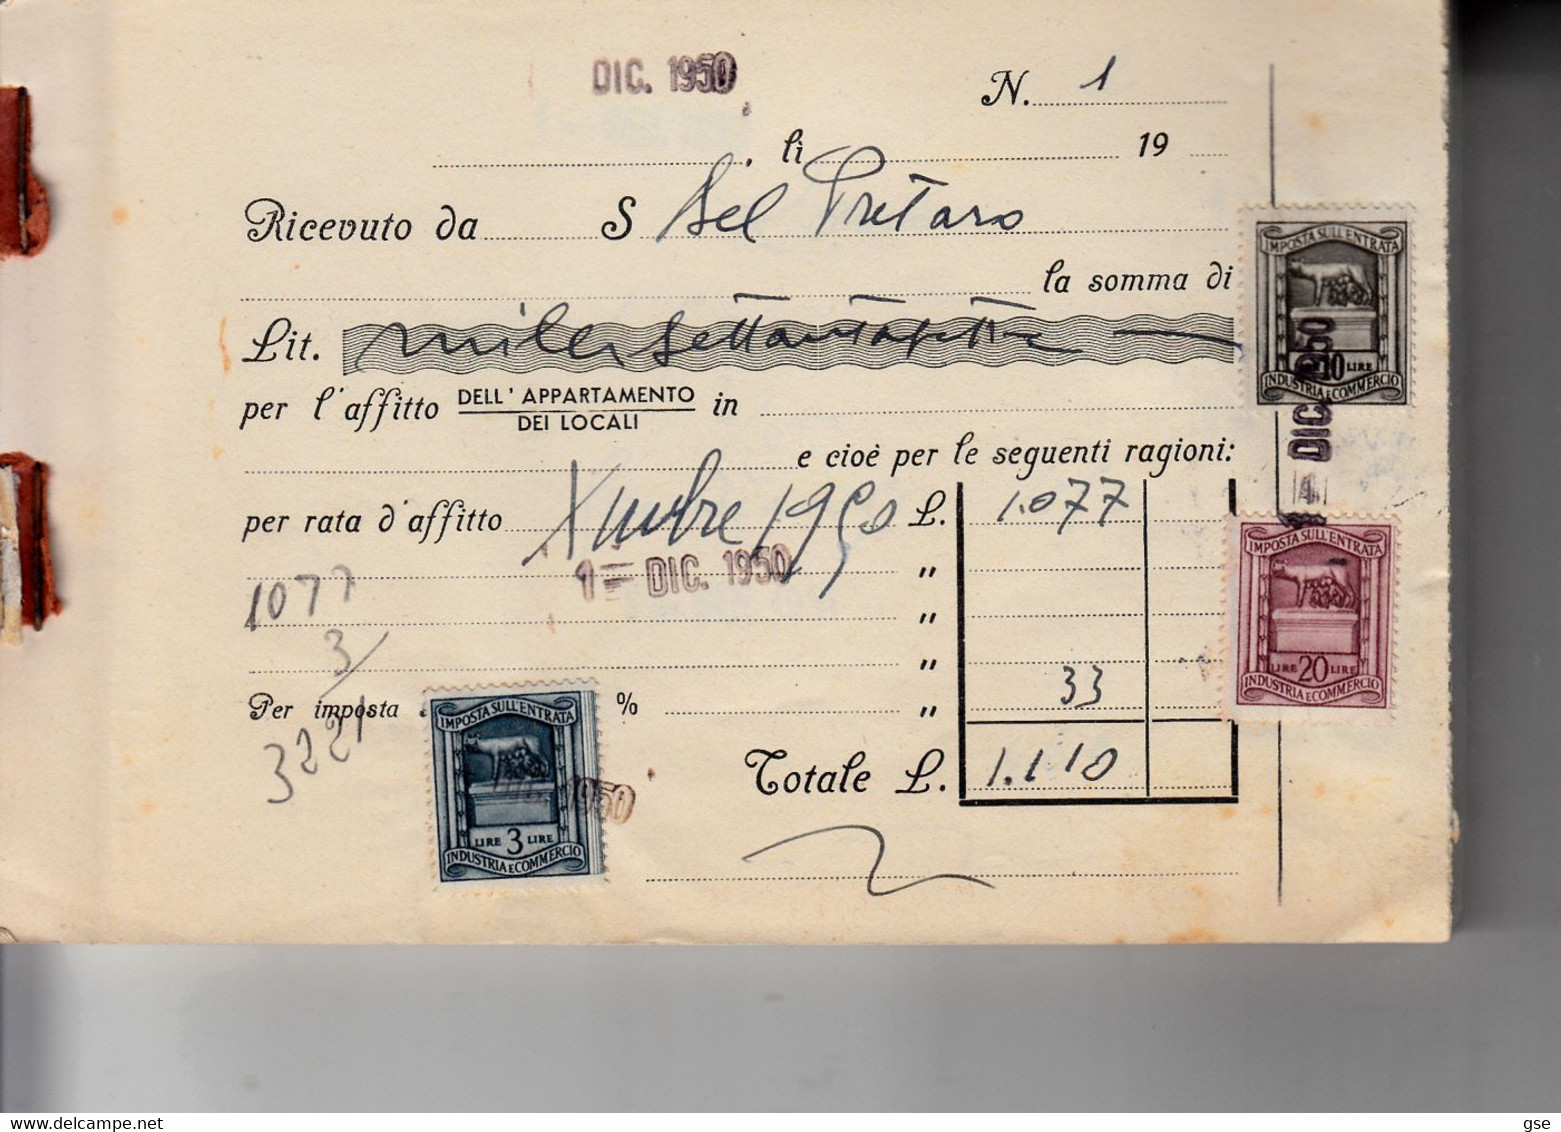 DIC. 1950
N. 1
, lì 19
Ricevuto da S Del Pretaro
la somma di
Lit. mille settantasette
per l'affitto DELL'APPARTAMENTO
DEI LOCALI in
e cioè per le seguenti ragioni:
per rata d'affitto Xmbre 1950 L. 1.077
1 = DIC. 1950 "
1077 "
3 "
Per imposta % " 33
3221
Totale L. 1.110
IMPOSTA SULL'ENTRATA
10 LIRE
INDUSTRIA E COMMERCIO
DIC. 1950
IMPOSTA SULL'ENTRATA
LIRE 20 LIRE
INDUSTRIA E COMMERCIO
IMPOSTA SULL'ENTRATA
1950
LIRE 3 LIRE
INDUSTRIA E COMMERCIO
delcampe.net
gse